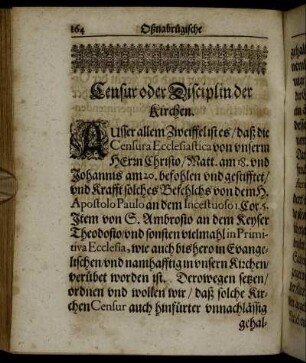 164 Oßnabrügische
Censur oder Disciplin der
Kirchen.
Ausser allem Zweiffel ist es / daß die
Censura Ecclesiastica von vnserm
HErrn Christo / Matt. am 18. vnd
Johannis am 20. befohlen vnd gestifftet /
vnd Krafft solches Befehlchs von dem H.
Apostolo Paulo an dem Incestuoso 1. Cor. 5.
Item von S. Ambrosio an dem Keyser
Theodosio / vnd sonsten vielmahl in Primi-
tiva Ecclesia, wie auch bishero in Evange-
lischen vnd namhafftig in vnsern Kirchen /
verübet worden ist. Derowegen setzen /
ordnen vnd wollen wir / daß solche Kir-
chen Censur auch hinfürter vnnachlässig
gehal-